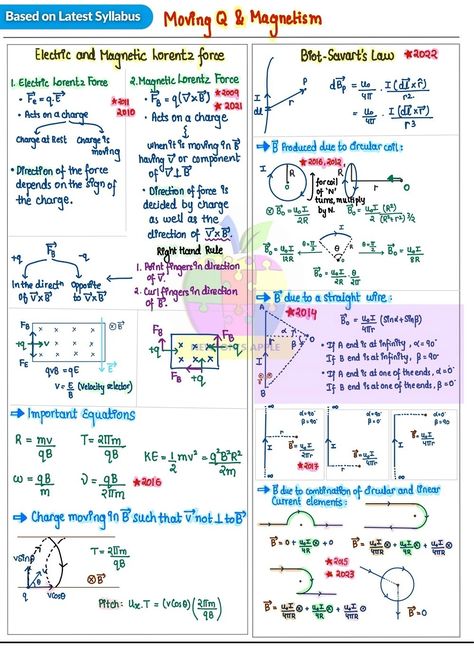 Based on Latest Syllabus
Moving Q & Magnetism
Electric and Magnetic Lorentz force
1. Electric Lorentz Force
• F⃗e = q.E⃗
*2011
2010
• Acts on a charge
Charge at Rest
Charge is moving
• Direction of the force
depends on the sign of
the charge.
2. Magnetic Lorentz Force
• F⃗B = q(V⃗×B⃗)
*2009
*2021
• Acts on a charge
when it is moving in B⃗
having V⃗ or component
of V⃗ ⊥ B⃗
• Direction of force is
decided by charge
as well as the
direction of V⃗×B⃗.
+q F⃗B -q
In the directn of V⃗×B⃗
Opposite to V⃗×B⃗
Right Hand Rule
1. Point fingers in direction
of V⃗.
2. Curl fingers in direction
of B⃗.
FB
+q
FE
⊗ B⃗
qvB = qE
V = E/B (Velocity selector)
FB
+q
FB
+q
FB
NEWTON'S APPLE
→ Important Equations
R = mv/qB
T = 2πm/qB
KE = 1/2 mv² = q²B²R²/2m
ω = qB/m
ν = qB/2πm
*2016
→ Charge moving in B⃗ such that v⃗ not ⊥ to B⃗
vsinθ
v
θ
q
vcosθ
T = 2πm/qB
⊗B⃗
Pitch: Ux.T = (vcosθ)(2πm/qB)
Biot-Savart's Law
*2022
I
dl
r
P
dB⃗p = u₀/4π I(dl⃗×r̂)/r²
= u₀/4π I(dl⃗×r⃗)/r³
→ B⃗ Produced due to circular coil:
*2016, 2012,
I
R
O
for coil
of 'N'
turns, multiply
by N.
R
r
O
⊗ B⃗o = u₀I/2R
B⃗o = u₀I/2 (R²)/(R²+r²)3/2
B⃗o = u₀I/4R
θ=π/2
B⃗o = u₀I/8R
B⃗o = u₀I/2R . θ/2π
→ B⃗ due to a straight wire:
*2014
A
α
r
β
I
B
B⃗o = u₀I/4πr (sinα+sinβ)
• If A end is at infinity, α=90°
If B end is at infinity, β=90°
• If A end is at one of the ends, α=0°
If B end is at one of the ends, β=0°
∞
α=90°
β=90°
I
u₀I/2πr
*2017
∞
α=90°
β=0°
I
u₀I/4πr
∞
α=90°
β=0°
I
u₀I/4πr
→ B⃗ due to combination of circular and linear
current elements:
B⃗ = 0 + u₀I/4R + 0
B⃗ = u₀I/4πR + u₀I/4R + u₀I/4πR
*2015
*2023
B⃗ = u₀I/4πR + u₀I/4R + u₀I/4πR
B⃗=0